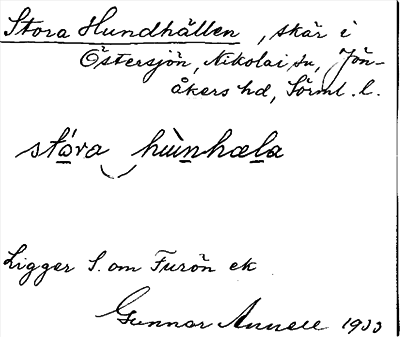 Stora Hundhällen, skär i
Östersjön, Nikolai sn, Jön-
åkers hd, Sörml. l.
stóra hùnhæla
Ligger S. om Furön ek
Gunnar Annell 1933